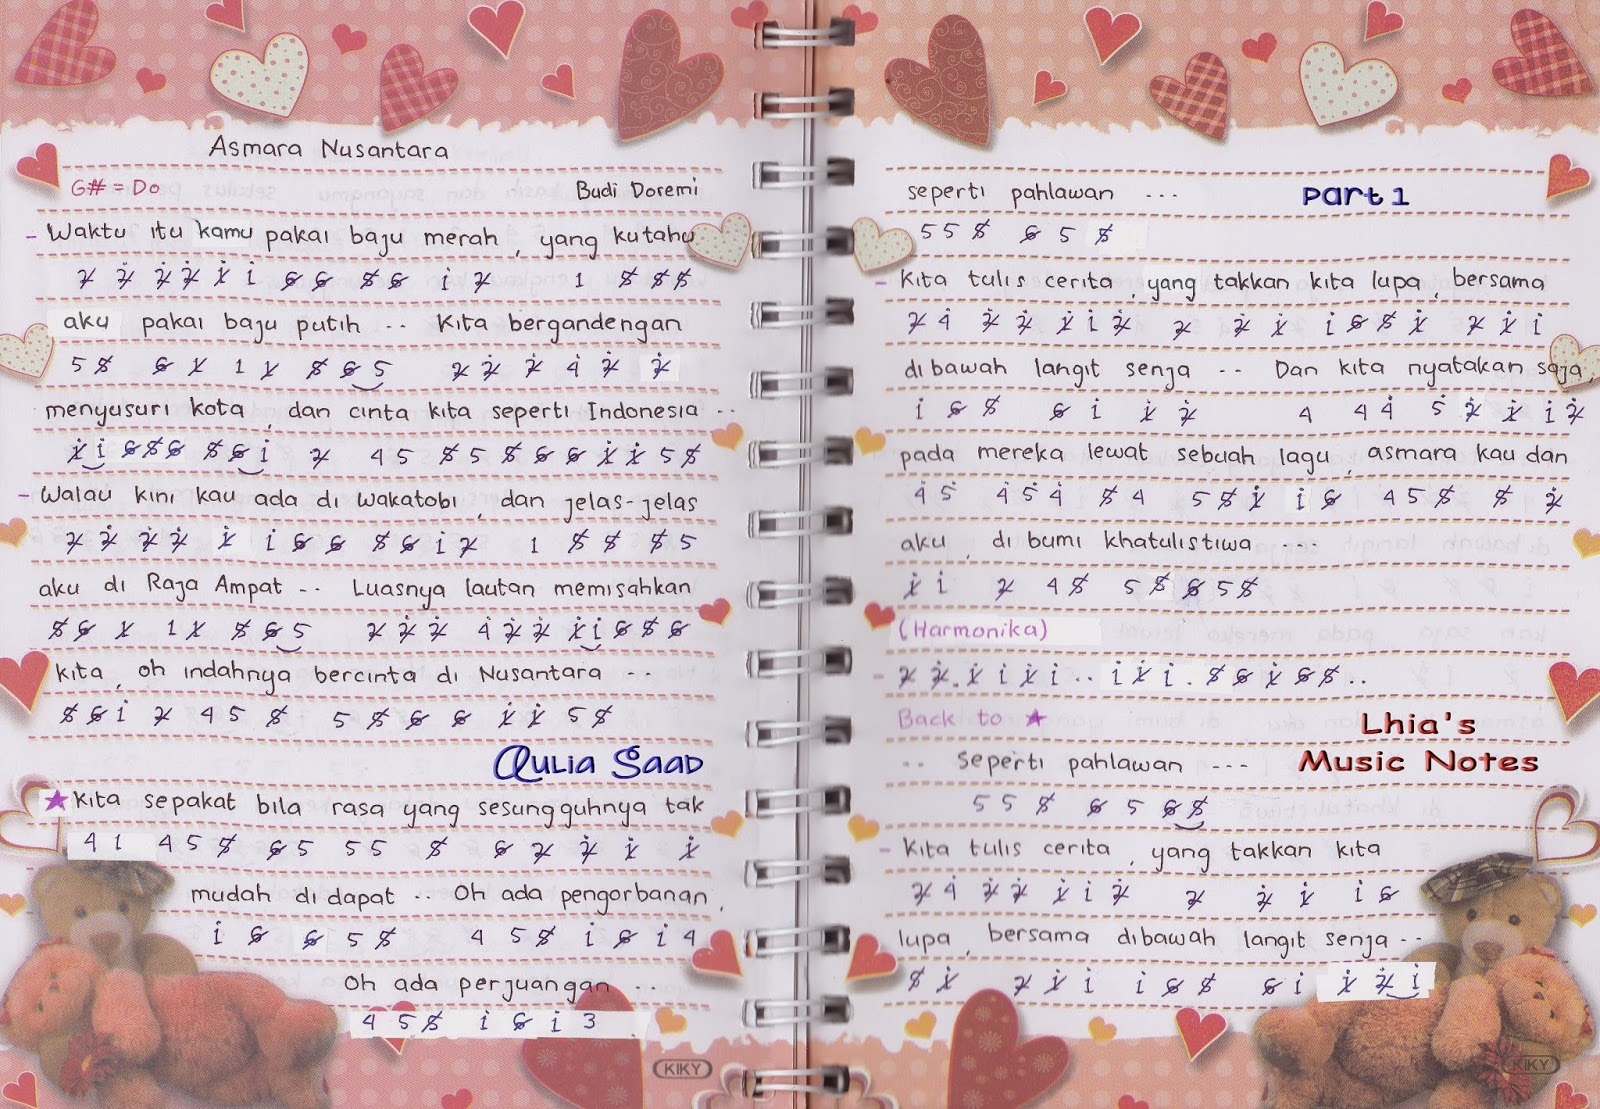 Asmara Nusantara
G# = Do Budi Doremi
- Waktu itu kamu pakai baju merah, yang kutahu
2 2 2 2 1 1 6 6 5 6 1 2 1 5 5 5
aku pakai baju putih .. Kita bergandengan
5 5 6 1 1 1 5 6 5 2 2 2 4 2 2
menyusuri kota, dan cinta kita seperti Indonesia ..
1 1 6 5 6 5 6 1 2 4 5 5 5 5 6 6 1 1 5 5
- Walau kini kau ada di wakatobi, dan jelas-jelas
2 2 2 2 1 1 6 6 5 6 1 2 1 5 5 5 5
aku di Raja Ampat .. Luasnya lautan memisahkan
5 6 1 1 1 5 6 5 2 2 2 4 2 2 1 1 6 5 6
kita, oh indahnya bercinta di Nusantara ...
5 6 1 2 4 5 5 5 5 6 6 1 1 5 5
Aulia Saad
★ Kita sepakat bila rasa yang sesungguhnya tak
4 1 4 5 5 6 5 5 5 5 6 2 2 1 1
mudah didapat .. Oh ada pengorbanan,
1 6 6 5 5 4 5 5 1 6 1 4
Oh ada perjuangan ..
4 5 5 1 6 1 3
KIKY
seperti pahlawan ... Part 1
5 5 5 6 5 5
- Kita tulis cerita, yang takkan kita lupa, bersama
2 4 2 2 1 1 2 2 2 1 1 6 5 1 2 1 1
dibawah langit senja .. Dan kita nyatakan saja,
1 6 5 6 1 1 2 4 4 4 5 2 1 1 2
pada mereka lewat sebuah lagu, asmara kau dan
4 5 4 5 4 5 4 5 5 1 1 6 4 5 5 5 2
aku, di bumi khatulistiwa ...
1 1 2 4 5 5 5 6 5 5
(Harmonika)
- 2 2 . 1 1 1 1 .. 1 1 1 . 5 6 1 6 5 ..
Back to ★ Lhia's
.. Seperti pahlawan ... Music Notes
5 5 5 6 5 6 5
- Kita tulis cerita, yang takkan kita
2 4 2 2 1 1 2 2 2 1 1 6
lupa, bersama dibawah langit senja ..
5 1 2 1 1 1 6 5 6 1 1 2 1
KIKY